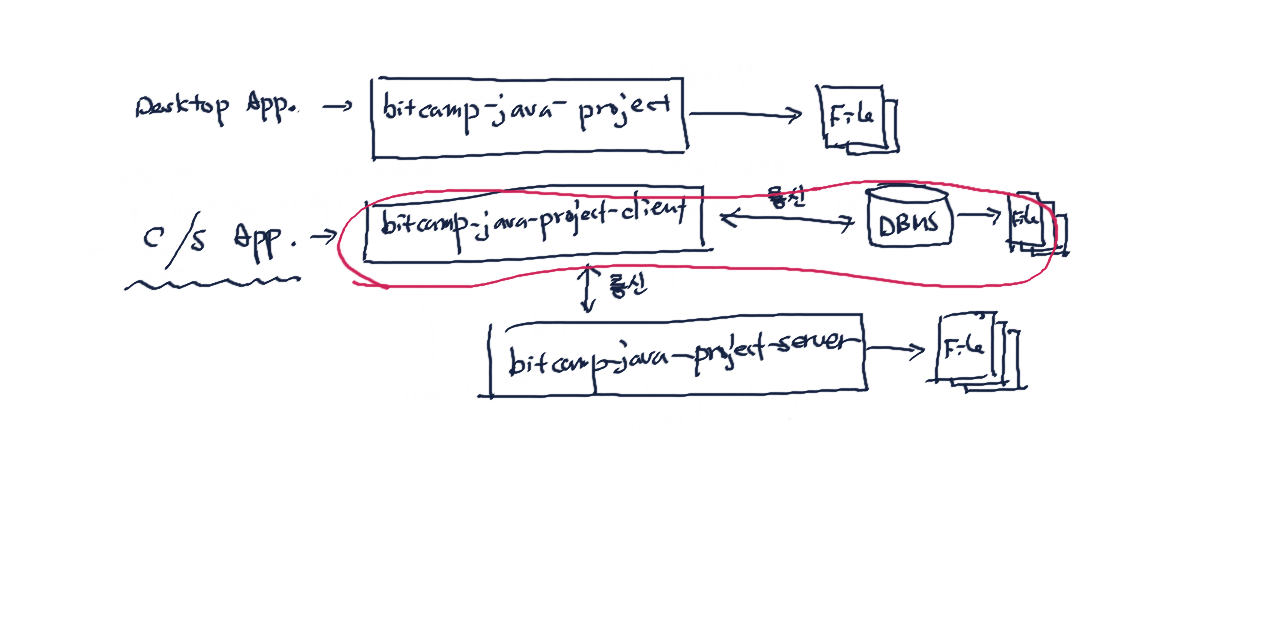 Desktop App. → bitcamp-java-project → File
통신
C/S App. → bitcamp-java-project-client ↔ DBMS → File
통신
bitcamp-java-project-server → File